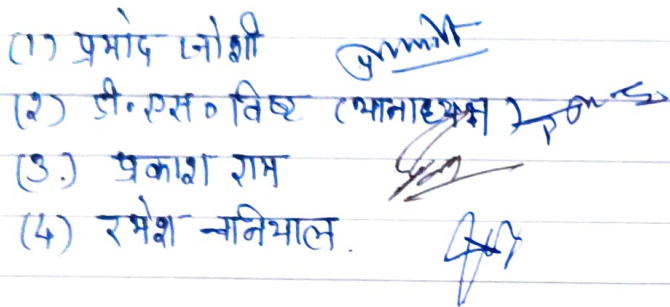 (1) प्रमोद जोशी
(२) डी॰एस॰ बिष्ट (थानाध्यक्ष)
(3.) प्रकाश राम
(4) रमेश ननियाल.